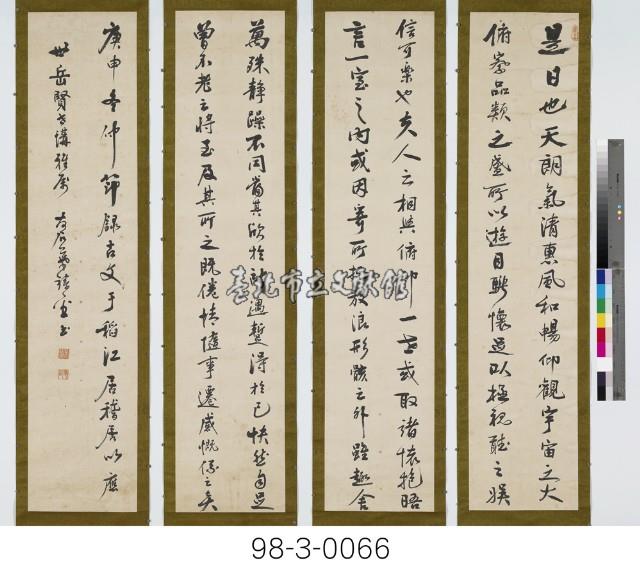 是日也天朗氣清惠風和暢仰觀宇宙之大
俯察品類之盛所以遊目騁懷足以極視聽之娛
信可樂也夫人之相與俯仰一世或取諸懷抱晤
言一室之內或因寄所托放浪形骸之外雖趣舍
萬殊靜躁不同當其欣於所遇暫得於己快然自足
曾不老之將至及其所之既倦情隨事遷感慨係之矣
庚申冬仲節錄古文于稻江居稽處以應
世岳賢書講雅屬
臺北市立文獻館
98-3-0066